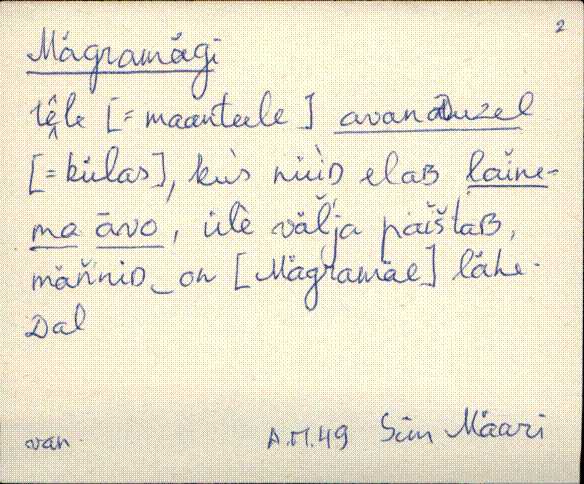 2
Mägramägi
tê̬le [= maanteele] avanduzel
[= külas], kus nüìD elaB laine-
ma āvo, üle välja paištaB,
männiD_on [Mägramäe] lähe-
Dal
van. A.M.49 Siim Määri